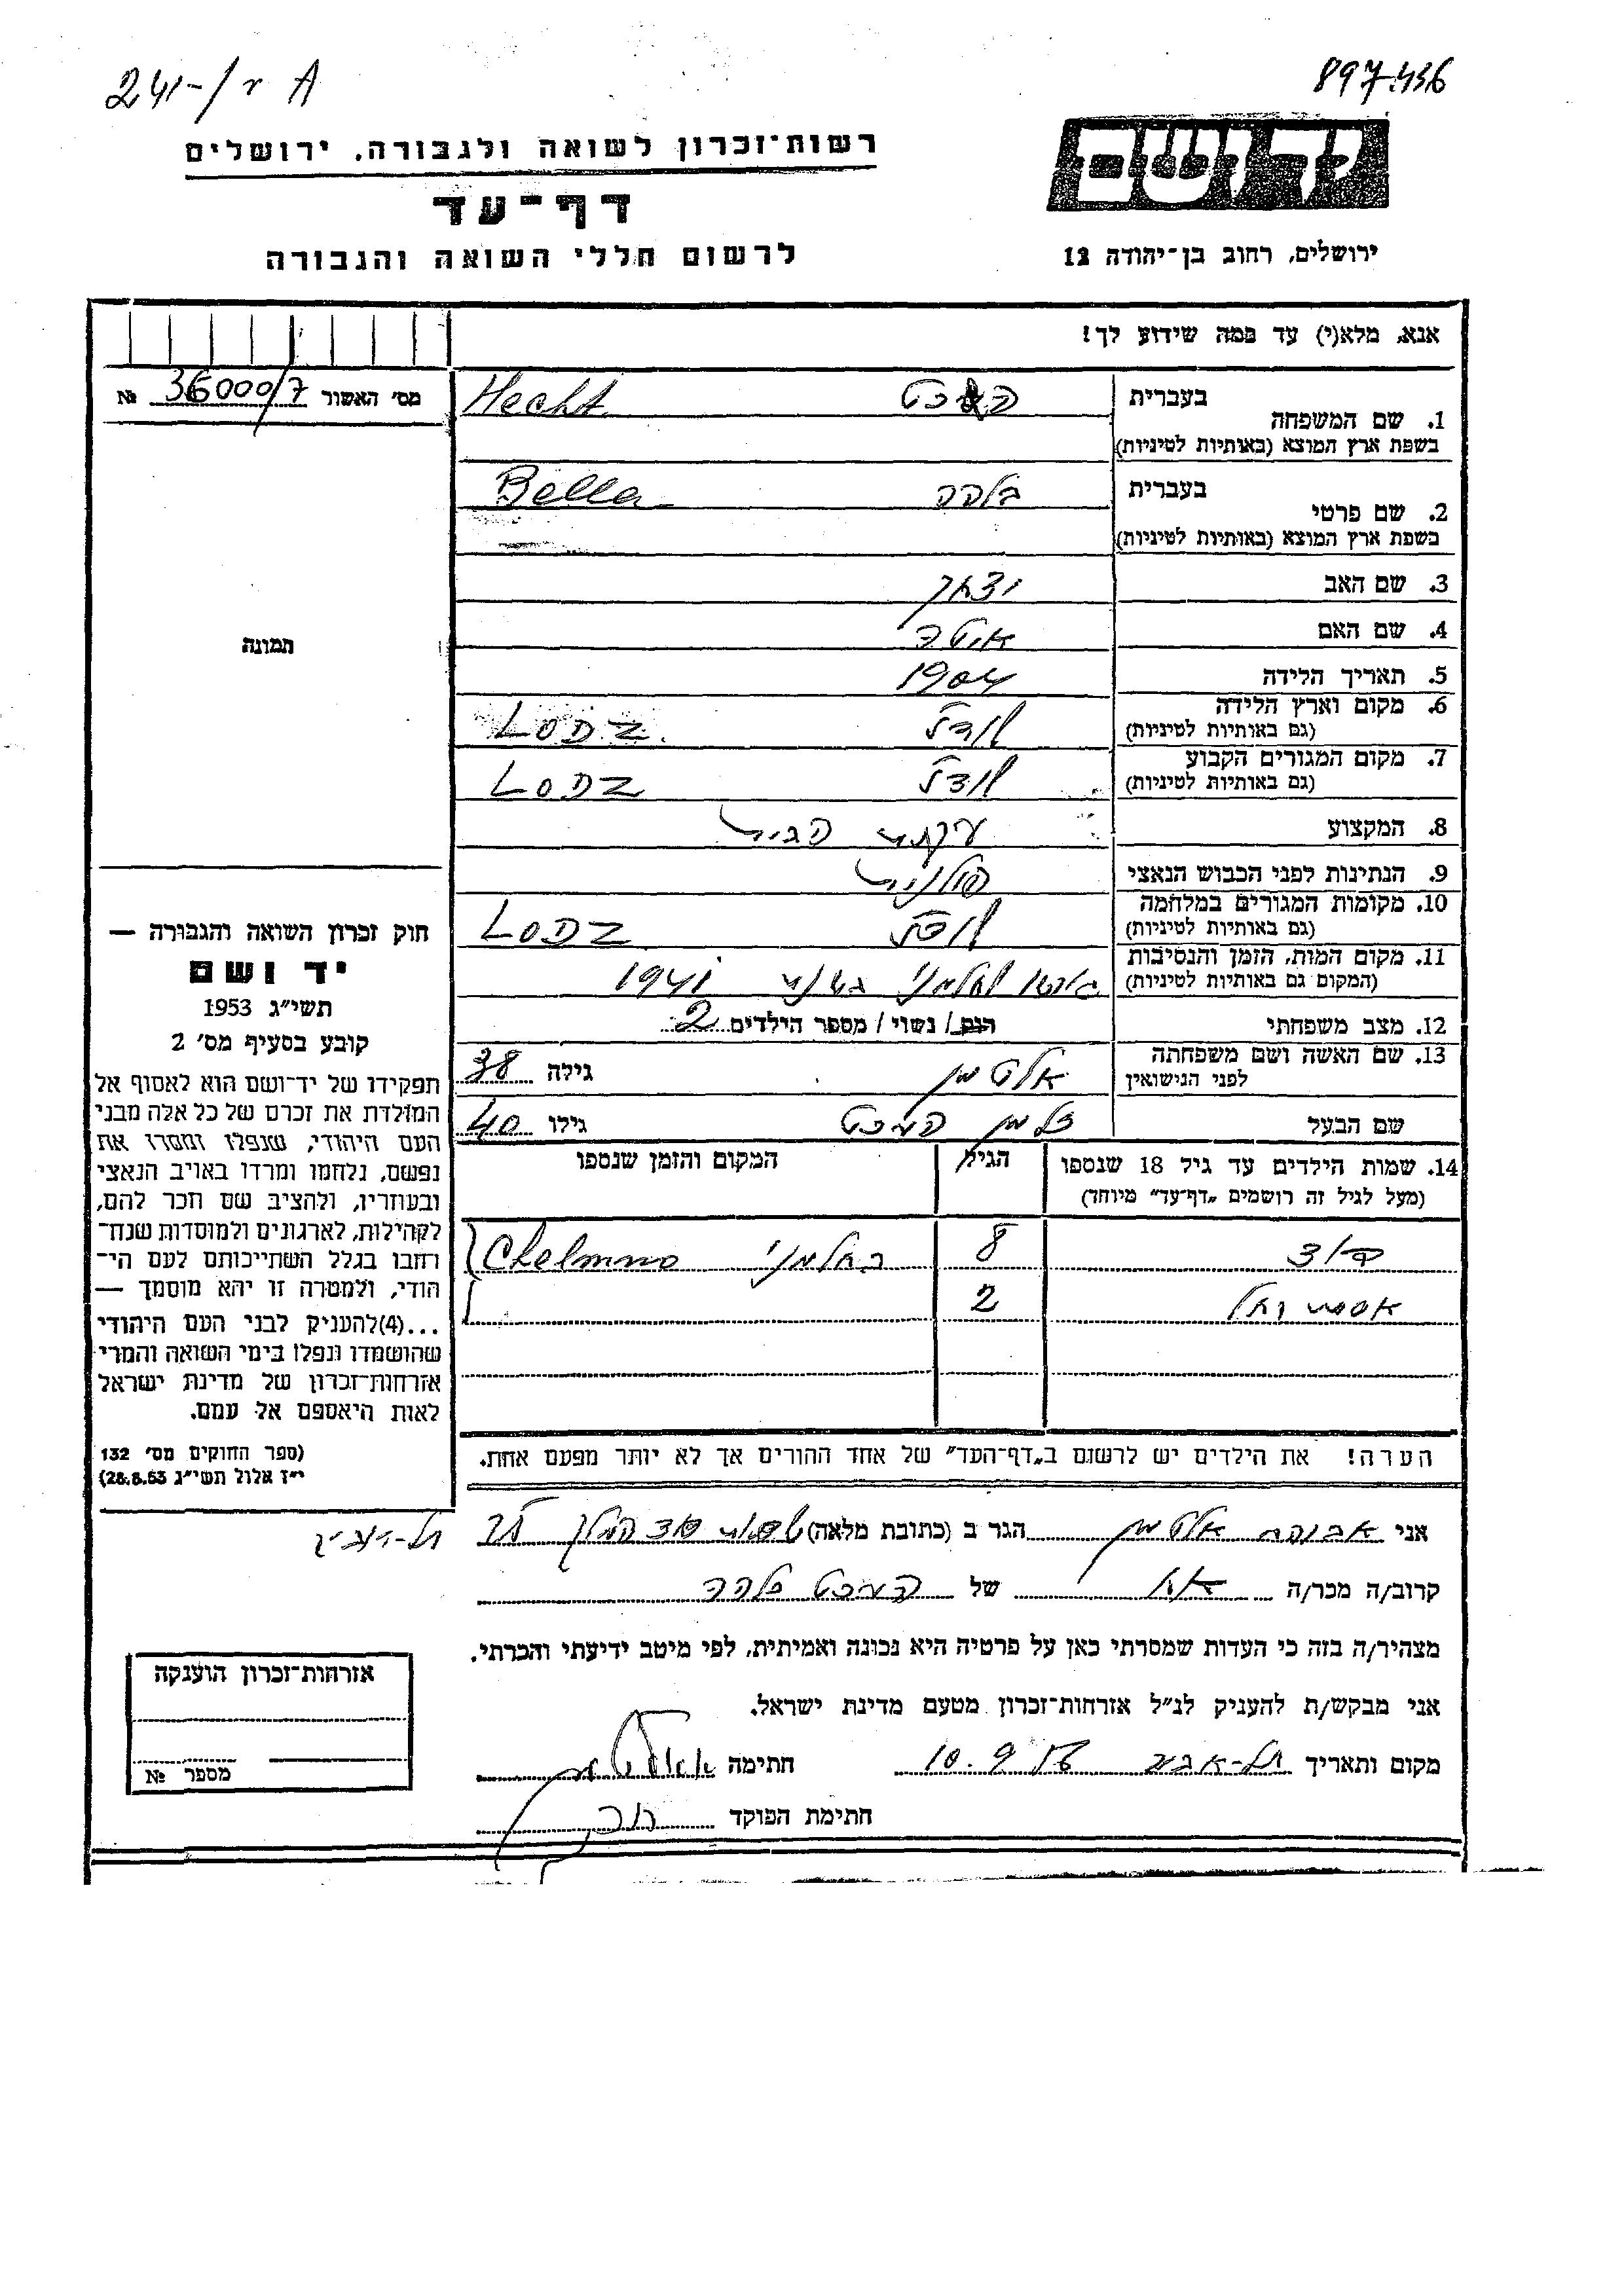 241-/r A
897.436
יד ושם
רשות־זכרון לשואה ולגבורה, ירושלים
דף־עד
לרשום חללי השואה והגבורה
ירושלים, רחוב בן־יהודה 12
אנא, מלא(י) עד כמה שידוע לך!
מס' האשור № 36000/7
1. שם המשפחה
בעברית העכט Hecht
בשפת ארץ המוצא (באותיות לטיניות)
2. שם פרטי
בעברית בלהה Bella
בשפת ארץ המוצא (באותיות לטיניות)
3. שם האב יצחק
4. שם האם איטה
5. תאריך הלידה 1904
6. מקום וארץ הלידה לודז LODZ
(גם באותיות לטיניות)
7. מקום המגורים הקבוע לודז LODZ
(גם באותיות לטיניות)
8. המקצוע עקרת הבית
9. הנתינות לפני הכבוש הנאצי פולנית
10. מקומות המגורים במלחמה לודז LODZ
(גם באותיות לטיניות)
11. מקום המות, הזמן והנסיבות חלמנו בשנת 1941
(המקום גם באותיות לטיניות)
12. מצב משפחתי רוק / נשוי / מספר הילדים 2
13. שם האשה ושם משפחתה אלטמן גילה 38
לפני הנישואין
שם הבעל זלמן העכט גילו 40
14. שמות הילדים עד גיל 18 שנספו הגיל המקום והזמן שנספו
(מעל לגיל זה רושמים „דף־עד” מיוחד)
8 בחלמנו Chelmno
2
הערה! את הילדים יש לרשום ב„דף־העד” של אחד ההורים אך לא יותר מפעם אחת.
תמונה
חוק זכרון השואה והגבורה —
יד ושם
תשי״ג 1953
קובע בסעיף מס' 2
תפקידו של יד־ושם הוא לאסוף אל
המולדת את זכרם של כל אלה מבני
העם היהודי, שנפלו ומסרו את
נפשם, נלחמו ומרדו באויב הנאצי
ובעוזריו, ולהציב שם וזכר להם,
לקהילות, לארגונים ולמוסדות שנח־
רבו בגלל השתייכותם לעם הי־
הודי, ולמטרה זו יהא מוסמך —
...(4)להעניק לבני העם היהודי
שהושמדו ונפלו בימי השואה והמרי
אזרחות־זכרון של מדינת ישראל
לאות היאספם אל עמם.
(ספר החוקים מס' 132
י״ז אלול תשי״ג 28.8.53)
אני אלטמן הגר ב (כתובת מלאה) המלך תל-אביב
קרוב/ה מכר/ה אח של העכט בלהה
מצהיר/ה בזה כי העדות שמסרתי כאן על פרטיה היא נכונה ואמיתית, לפי מיטב ידיעתי והכרתי.
אני מבקש/ת להעניק לנ״ל אזרחות־זכרון מטעם מדינת ישראל.
מקום ותאריך תל-אביב 10.9 חתימה
חתימת הפוקד
אזרחות־זכרון הוענקה
מספר №